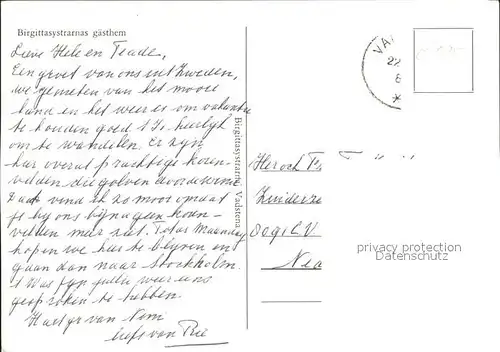 Birgittasystrarnas gästhem
Lieve Hele en Teade,
Een groet van ons uit Zweden,
we genieten van het mooie
land en het weer is om vakantie
te houden goed
om te wandelen. Er zijn
hier overal prachtige koren-
velden die golven
Dat vind ik zo mooi omdat
je bij ons bijna geen koren-
velden meer ziet. Tot as Maandag
hopen we hier te blijven en
gaan dan naar Stockholm.
't Was fijn jullie weer eens
gesproken te hebben.
Hartgr van Wim
liefs van Rie
Birgittasystrarna, Vadstena
VA
22
6
Her och
Zuiderze
8091 CV
privacy protection
Datenschutz